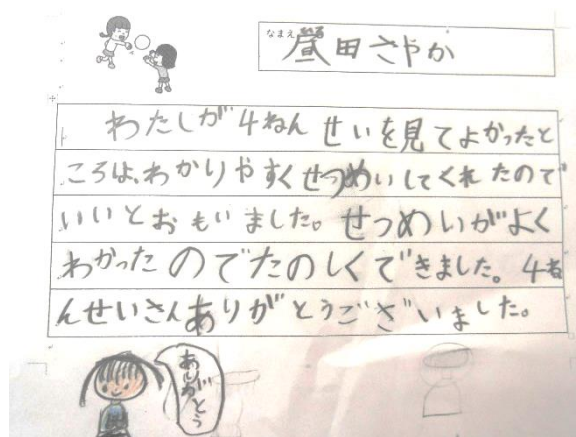 なまえ 昼田さやか
わたしが4ねんせいを見てよかったと
ころは、わかりやすくせつめいしてくれたので
いいとおもいました。せつめいがよく
わかったのでたのしくできました。4ね
んせいさんありがとうございました。
ありがとう